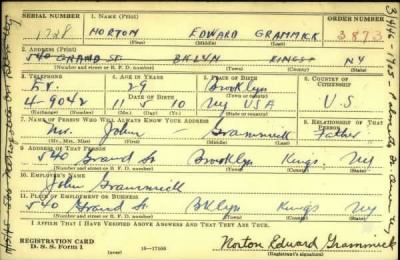 SERIAL NUMBER 1. NAME (Print) ORDER NUMBER
1728 NORTON EDWARD GRAMMICK 3873
(First) (Middle) (Last)
2. ADDRESS (Print)
540 GRAND ST. BKLYN KINGS NY
(Number and street or R. F. D. number) (Town) (County) (State)
3. TELEPHONE 4. AGE IN YEARS 5. PLACE OF BIRTH 6. COUNTRY OF CITIZENSHIP
Ev. 29 Brooklyn
DATE OF BIRTH (Town or county)
4-9042 11 5 10 NY USA U.S
(Exchange) (Number) (Mo.) (Day) (Yr.) (State or country)
7. NAME OF PERSON WHO WILL ALWAYS KNOW YOUR ADDRESS 8. RELATIONSHIP OF THAT PERSON
Mr. John Grammick Father
(Mr., Mrs., Miss) (First) (Middle) (Last)
9. ADDRESS OF THAT PERSON
540 Grand St Brooklyn Kings Ny
(Number and street or R. F. D. number) (Town) (County) (State)
10. EMPLOYER'S NAME
John Grammick
11. PLACE OF EMPLOYMENT OR BUSINESS
540 Grand St BKlyn Kings Ny
(Number and street or R. F. D. number) (Town) (County) (State)
I AFFIRM THAT I HAVE VERIFIED ABOVE ANSWERS AND THAT THEY ARE TRUE.
REGISTRATION CARD
D. S. S. Form 1 16-17105 Norton Edward Grammick
(Registrant's signature)